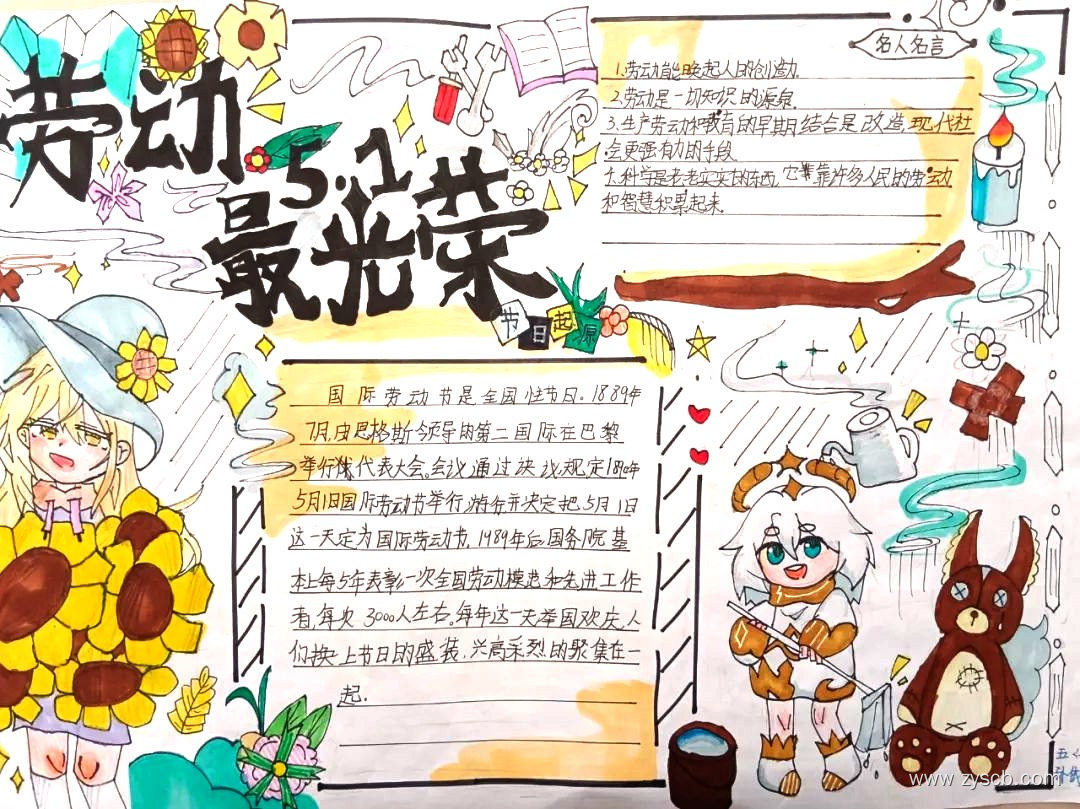 劳动
5.1
最光荣
名人名言
1.劳动能唤起人的创造力.
2.劳动是一切知识的源泉.
3.生产劳动和教育的早期结合是改造现代社
会更强有力的手段
4.科学是老老实实的东西,它靠许多人民的劳动
和智慧积累起来.
节日起源
国际劳动节是全国性节日.1889年
7月,由恩格斯领导的第二国际在巴黎
举行代表大会.会议通过决议规定1890年
5月1日国际劳动节举行游行并决定把5月1日
这一天定为国际劳动节.1989年后国务院基
本上每5年表彰一次全国劳动模范和先进工作
者,每次3000人左右.每年这一天举国欢庆,人
们换上节日的盛装,兴高采烈的聚集在一
起.
www.zyscb.com